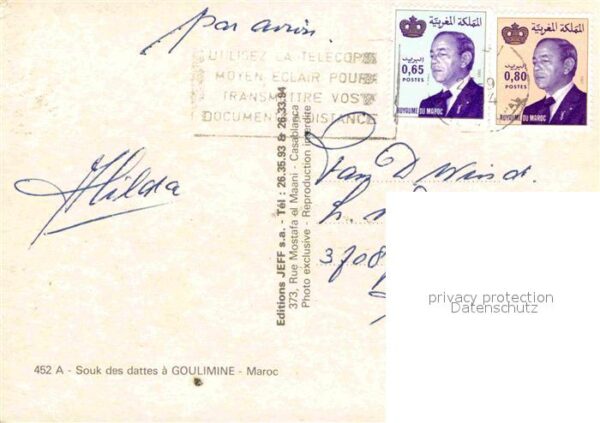 par avion
UTILISEZ LA TELECOPIE
MOYEN ECLAIR POUR
TRANSMETTRE VOS
DOCUMENTS A DISTANCE
المملكة المغربية
البريد
0,65
POSTES
ROYAUME DU MAROC
المملكة المغربية
البريد
0,80
POSTES
ROYAUME DU MAROC
Hilda
Editions JEFF s.a. - Tél : 26.35.93 & 26.33.94
373, Rue Mostafa el Maani - Casablanca
Photo exclusive - Reproduction interdite
3708
privacy protection
Datenschutz
452 A - Souk des dattes à GOULIMINE - Maroc